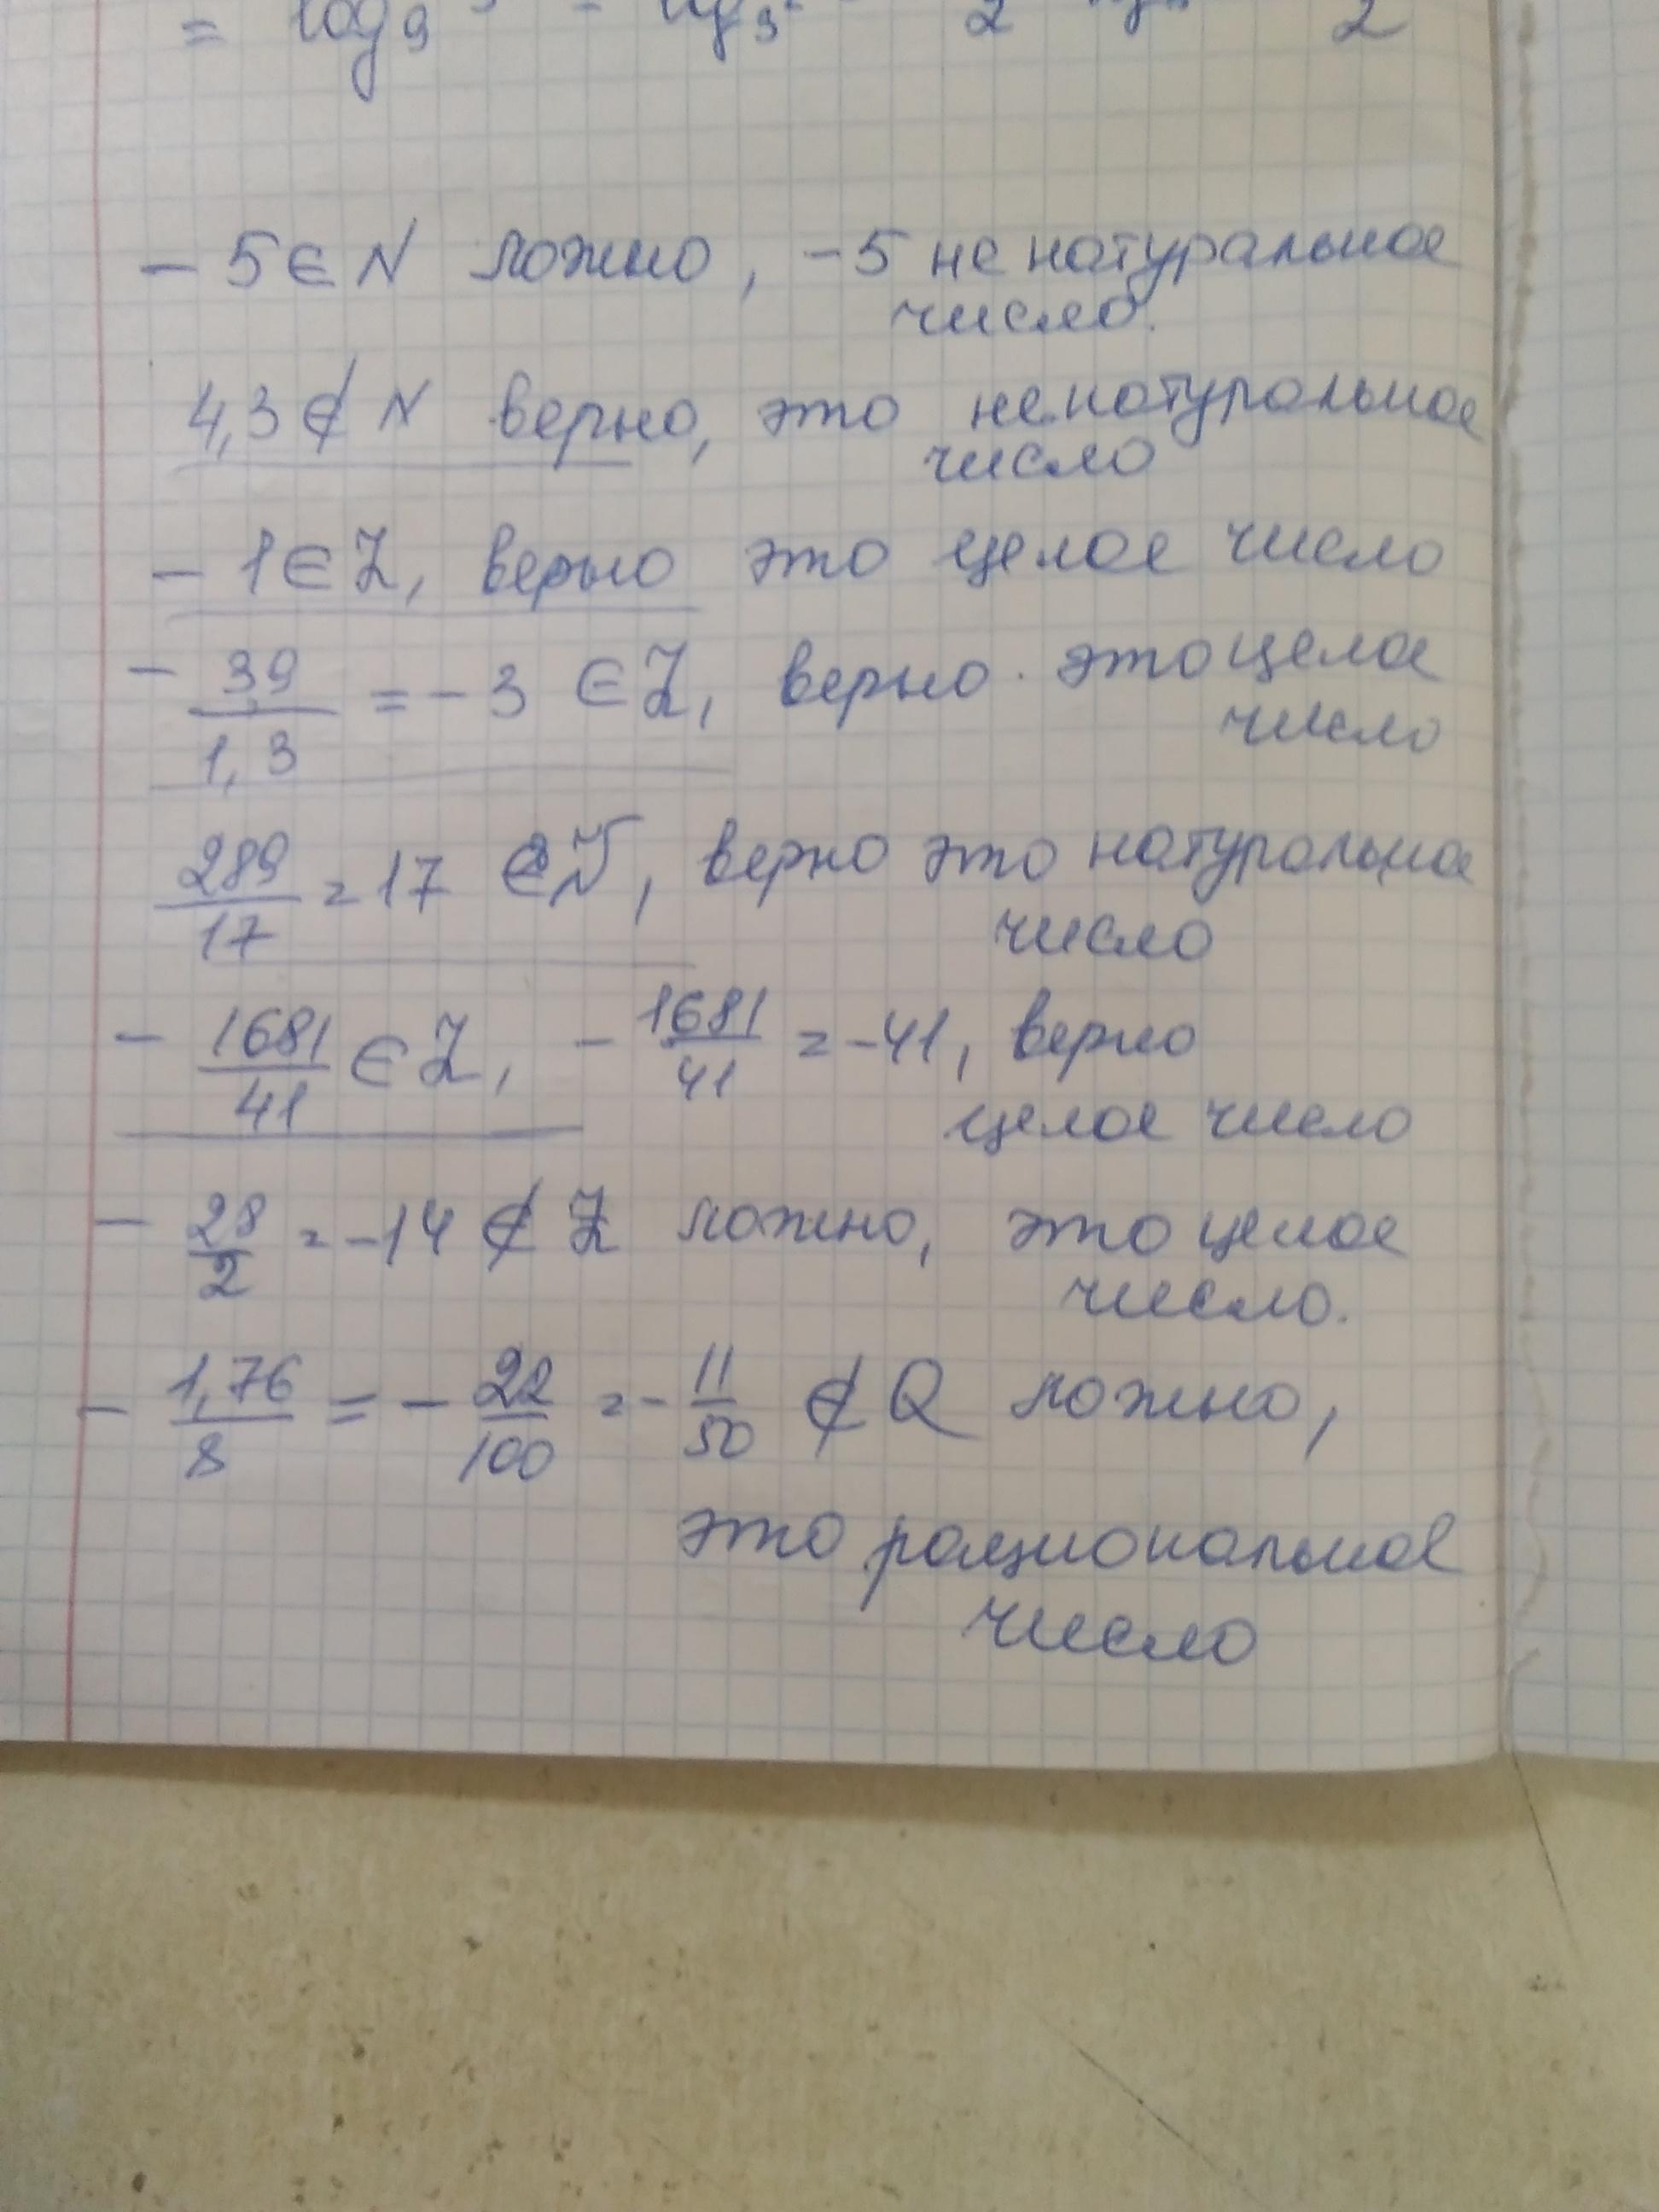 = log₉
2 2
- 5 ∈ N ложно, -5 не натуральное
число.
4,3 ∉ N верно, это ненатуральное
число
- 1 ∈ Z, верно это целое число
- 3,9/1,3 = -3 ∈ Z, верно. это целое
число
289/17 = 17 ∈ N, верно это натуральное
число
- 1681/41 ∈ Z, - 1681/41 = -41, верно
целое число
- 28/2 = -14 ∉ Z ложно, это целое
число.
- 1,76/8 = - 22/100 = - 11/50 ∉ Q ложно,
это рациональное
число